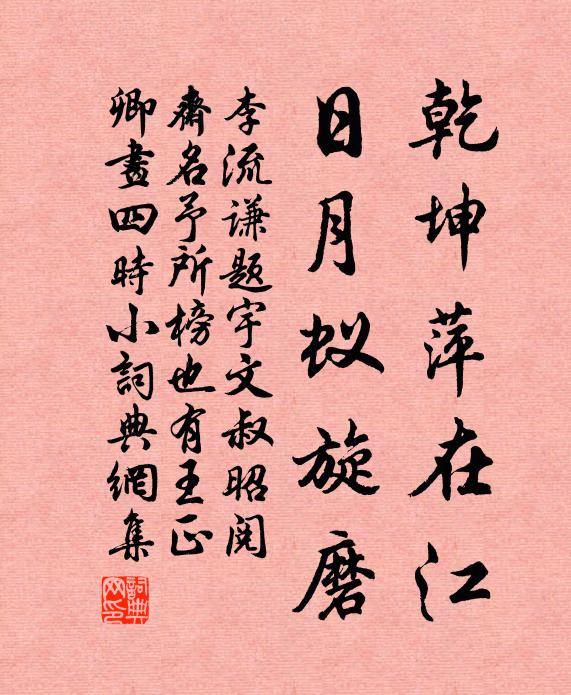 乾坤萍在江
日月蚁旋磨
李流谦题宇文叔昭阅
斋名予所榜也有王正
卿畫四時小詞典網集
詞典網印